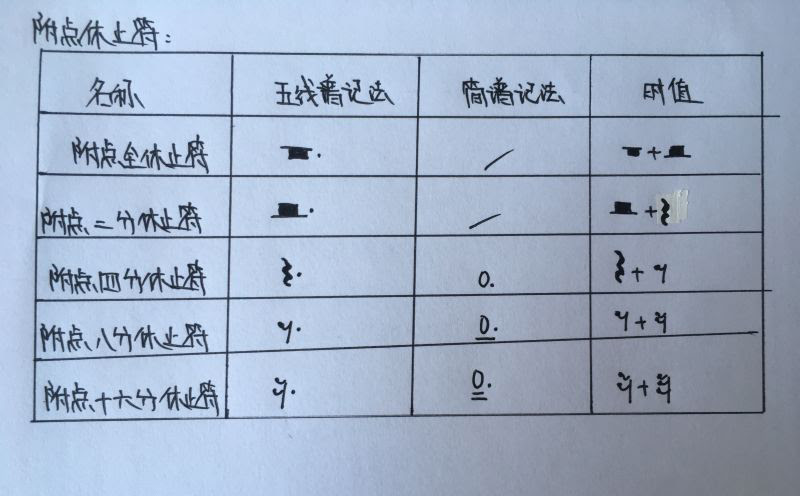 附点休止符:
名称 五线谱记法 简谱记法 时值
附点全休止符 𝄻· / 𝄻+𝄼
附点二分休止符 𝄼· / 𝄼+𝄽
附点四分休止符 𝄽· 0. 𝄽+𝄾
附点八分休止符 𝄾· 0. 𝄾+𝄿
附点十六分休止符 𝄿· 0. 𝄿+𝅀